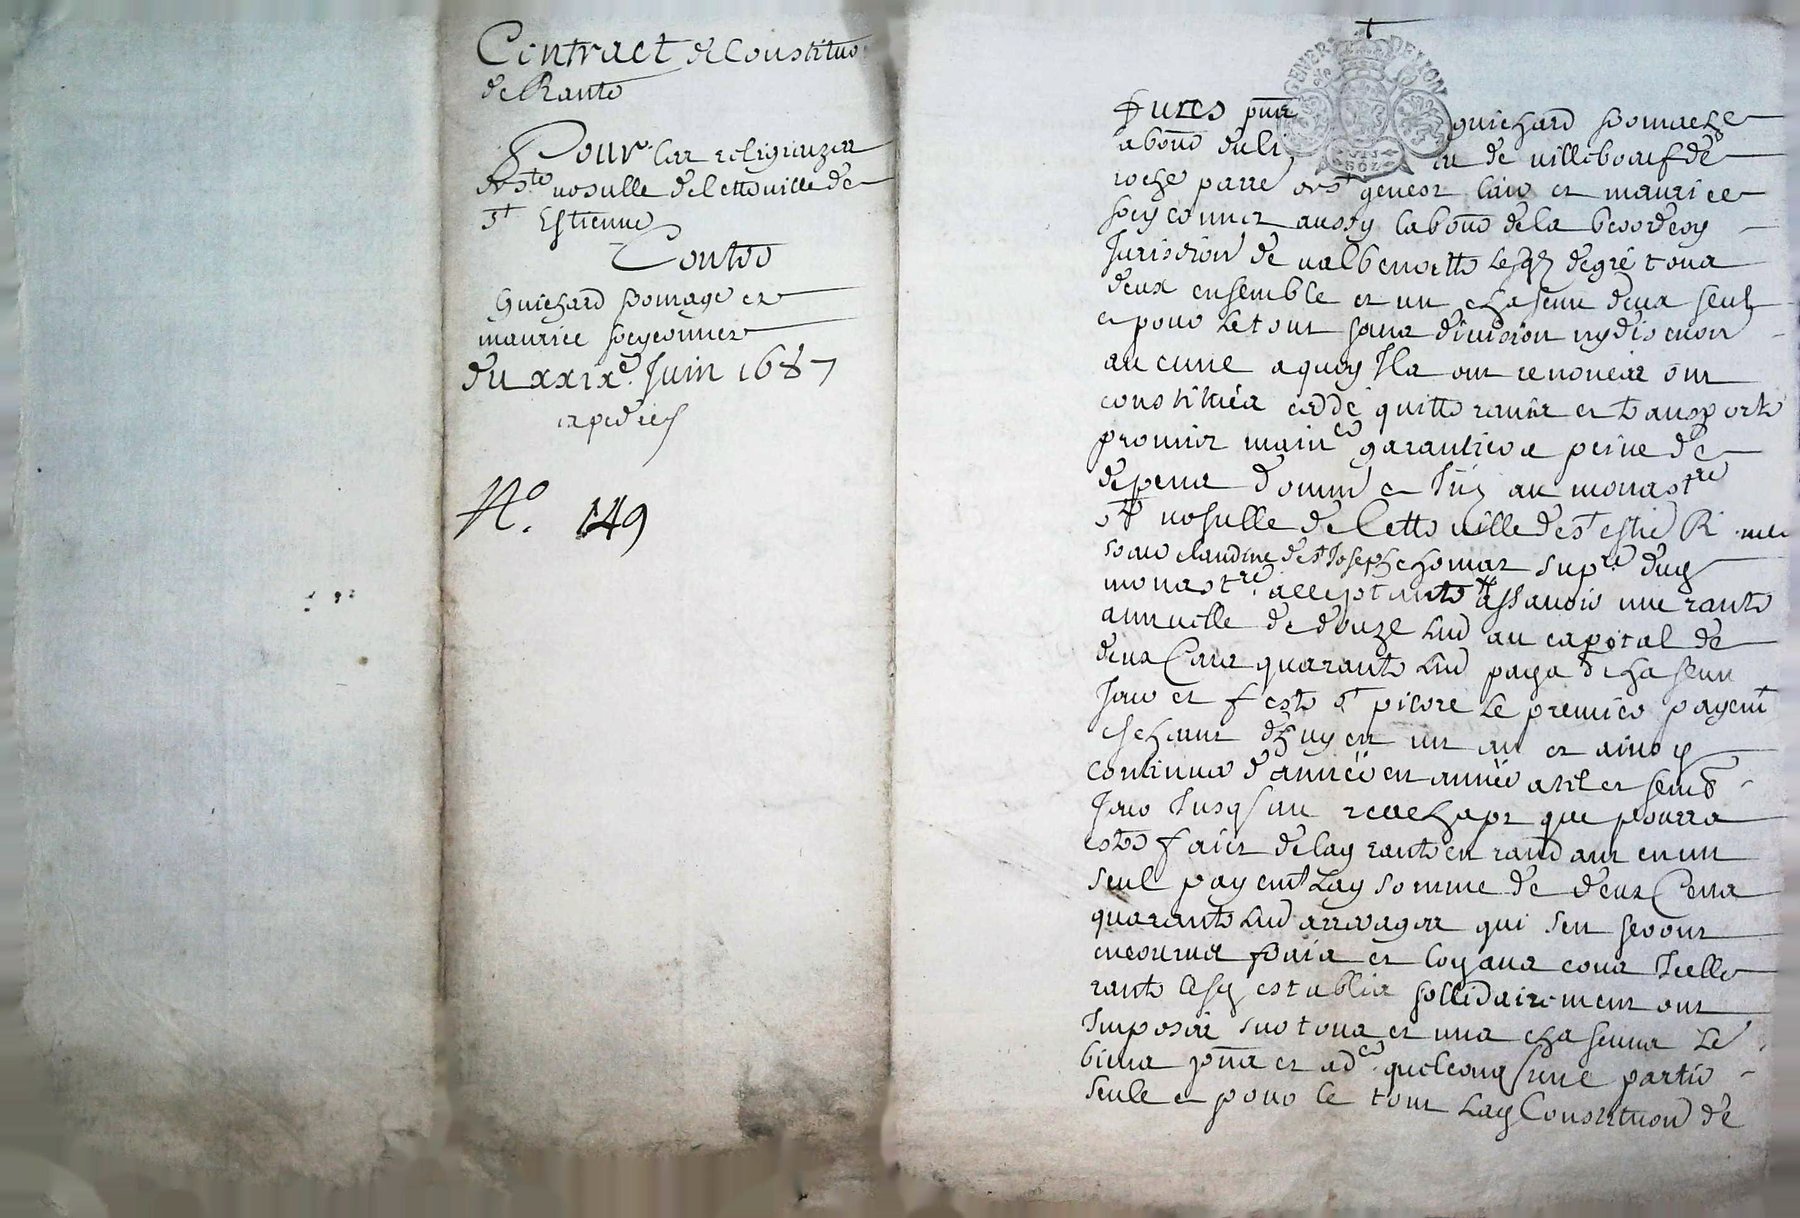 Contract de Constituon
de Rante
Pour les religieuzes
de ste ursulle de cette ville de
st Estienne
Contre
Guichard Pomage et
maurice
du xxixe. Juin 1687
No. 149
GENER DE LYON
Furent pnts guichard
de villeboeuf de
et maurice
aussy labour de la
Jurisdion de valbenoitte lesqls de gré tous
deux ensemble et un chascun deux seul
et pour le tout sans division ny discution
aucune a quoy Ils ont renoncéz ont
constitués ceddé quitté remis et transporté
promier main garantir a peine de
despens domm et Itz au monastre
ste ursulle de cette ville de st estie R mere
soeur claudine de st Joseph supre dud
monastre. acceptante assavoir une rante
annuelle de douze liv au capital de
deux Cens quarante liv paya chascun
Jour et feste st pierre le premier payemt
escheant dhuy en un an et ainsy
continuer d'année en année a tel et semb
Jour Jusqs au reachapt que pourra
estre faict de lad rante en randant en un
seul payemt lad somme de deux Cens
quarante liv arrerages qui sen seront
encourus frais et loyaux cous Icelle
rante solidairement ont
Imposée sur tous et uns chascuns le
biens pnts et adve. quelconqs l'une partie
seule et pour le tout lad Constituon de